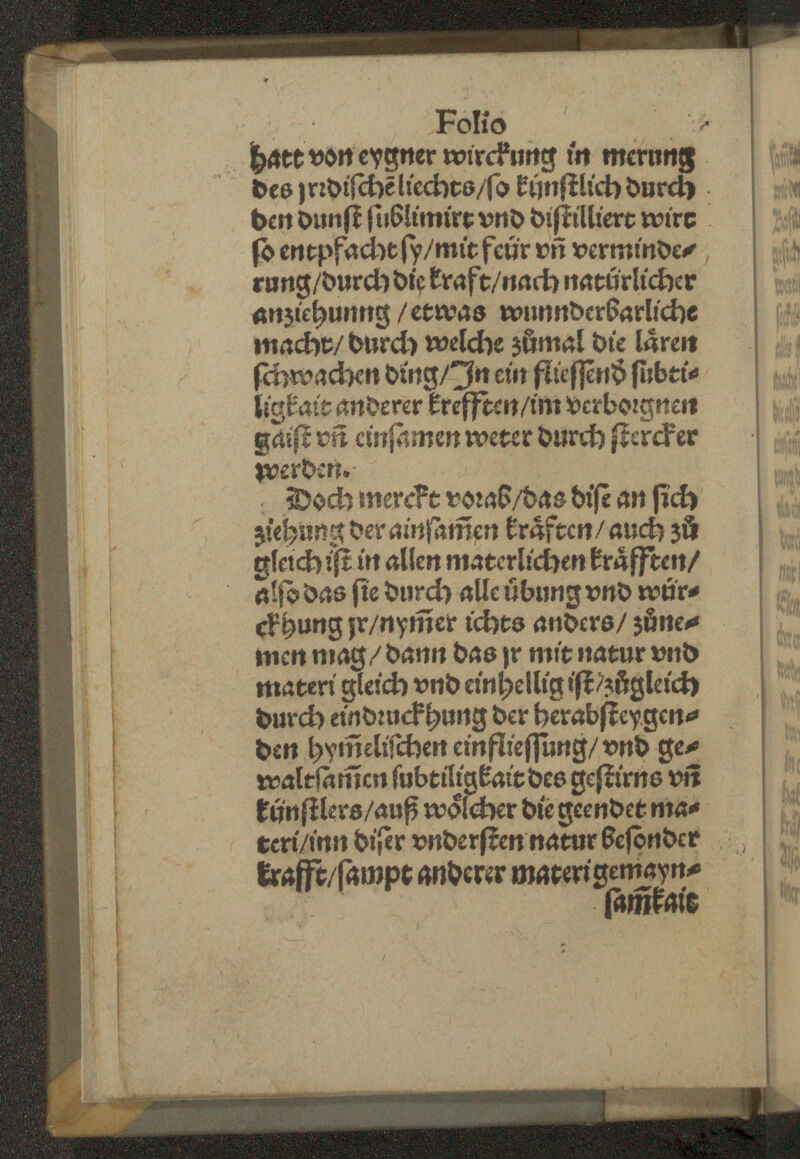 Folio
hatt von eygner wirckung in merung
des jrꝛdiſchē liechts/ſo kůnſtlich durch
den dunſt ſublimirt vnd diſtilliert wirt
ſo entpfacht ſy/mit feür vñ verminde⸗
rung/durch die kraft/nach natürlicher
anziehunng /etwas wunnderbarliche
macht/ durch welche zůmal die låren
ſchwachen ding/In ein flieſſend ſubti⸗
ligkait anderer krefften/im verboꝛgnen
gaiſt vñ einſamen weter durch ſtercker
werden.
Doch merckt voꝛab/das diſe an ſich
ziehung der ainſam̃en kråften/ auch zů
gleich iſt in allen materlichen kråfften/
alſo das ſie durch alle übung vnd wür⸗
ckhung jr/nym̃er ichts anders/ zůne⸗
men mag/ dann das jr mit natur vnd
materi gleich vnd einhellig iſt/zůgleich
durch eindꝛuckhung der herabſteygen⸗
den hym̃eliſchen einflieſſung/ vnd ge⸗
waltſam̃en ſubtiligkait des geſtirns vñ
künſtlers/auß wölcher die geendet ma⸗
teri/inn diſer vnderſten natur beſonder
krafft/ſampt anderer materi gemayn⸗
ſam̃kait